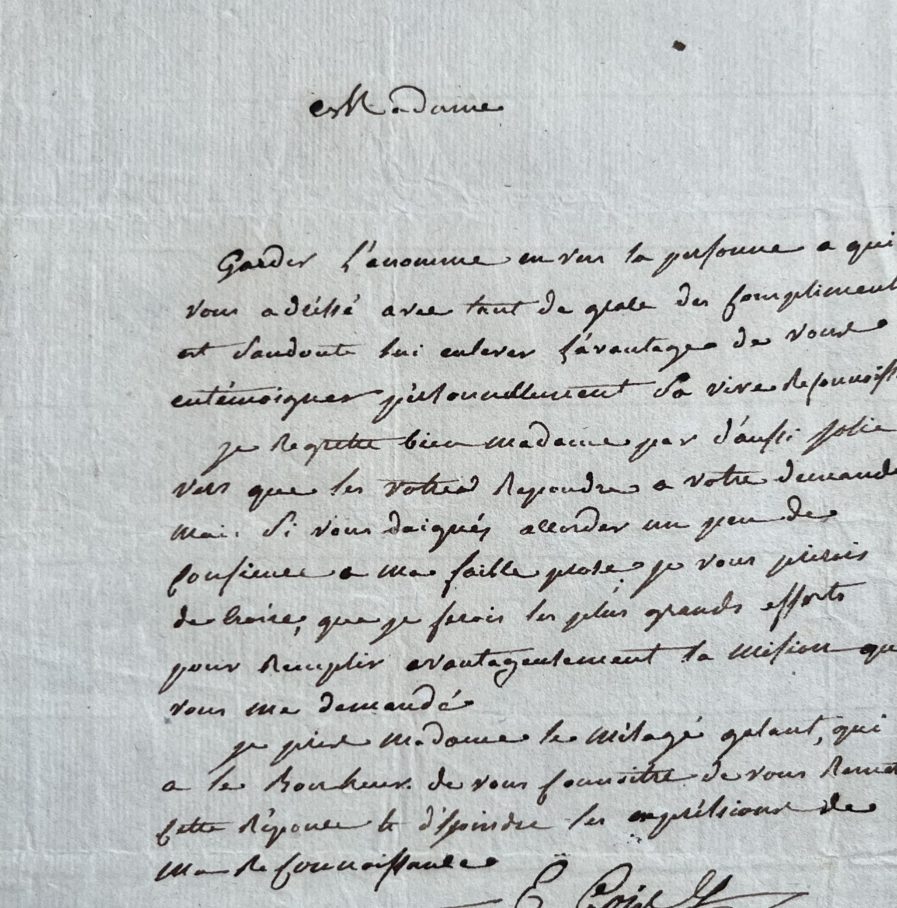 Madame
Garder l'anonime en vers la personne a qui
vous adréssé avec tant de grace des compliment
est sandoute lui enlever l'avantage de vous
entémoigner personnellement sa vive Reconnoiss
je Regrette bien madame par d'aussi jolie
vers que les votres Repondre a votre demande
mais si vous daignés accorder un peu de
confience a ma faible prose je vous prierois
de croire, que je ferois les plus grands efforts
pour Remplir avantageusement la mission qu
vous ma demandé
je prie madame le galant, qui
a le Bonheur de vous connoitre de vous Remet
cette Réponce et d'y joindre les expréssions de
ma Reconnoissance